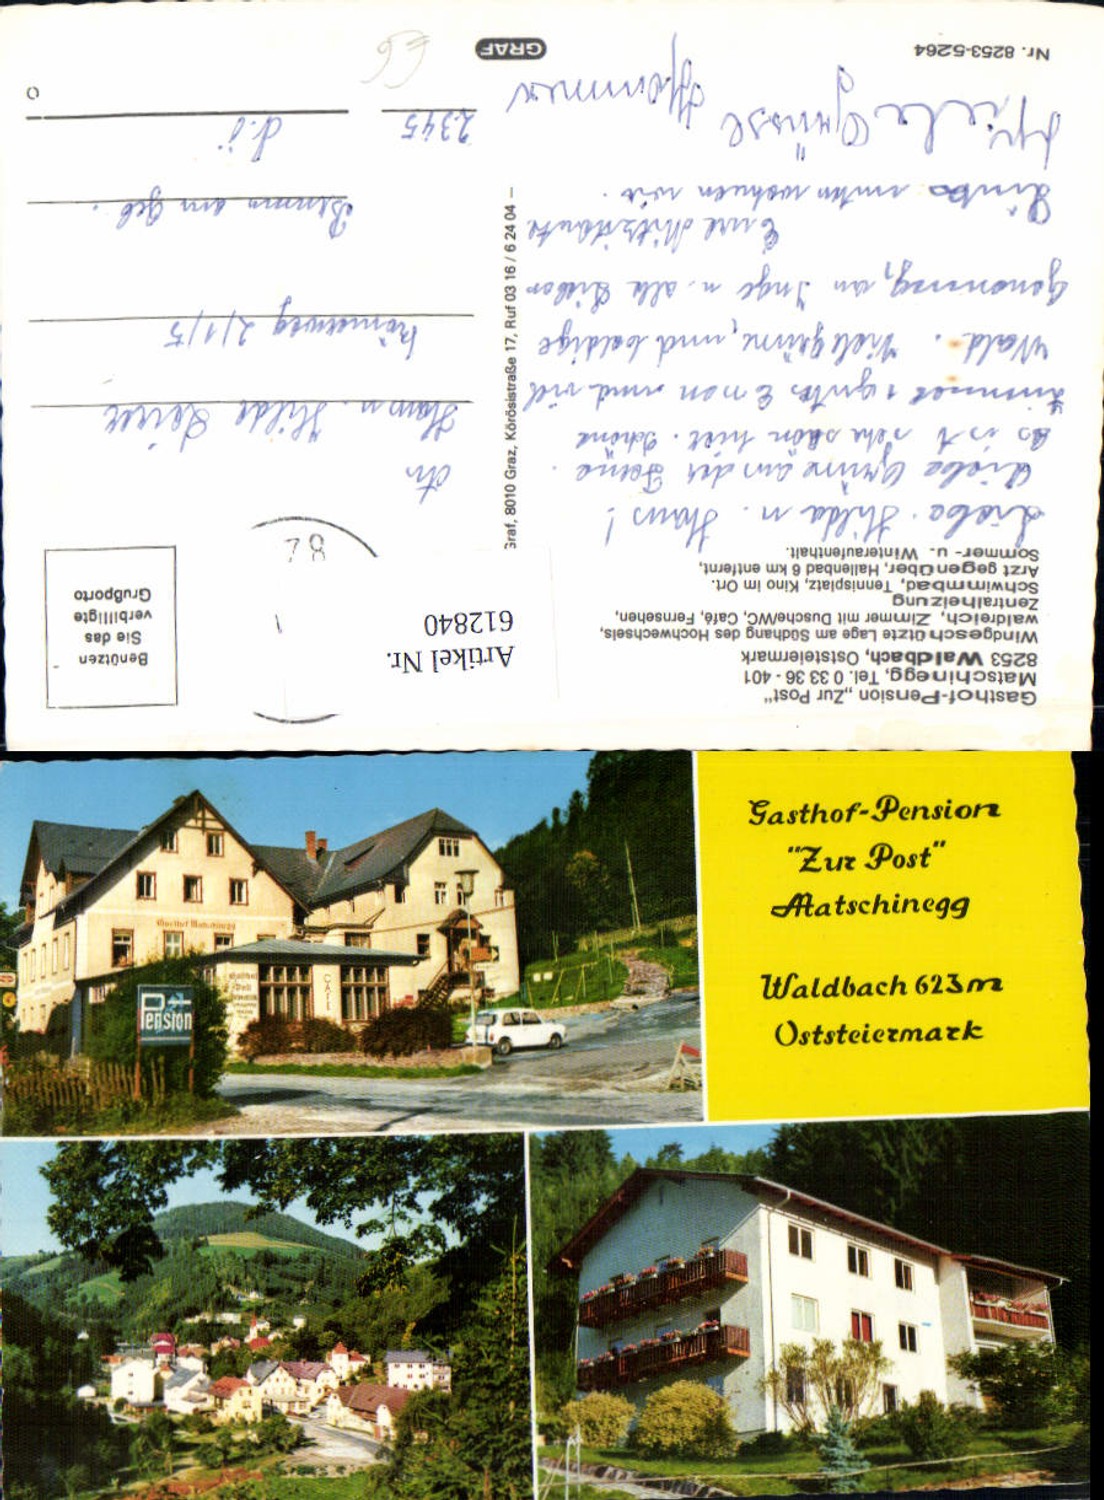 Gasthof-Pension „Zur Post“
Matschinegg, Tel. 0 33 36 - 401
8253 Waldbach, Oststeiermark
Windgeschützte Lage am Südhang des Hochwechsels,
waldreich, Zimmer mit Dusche/WC, Café, Fernsehen,
Zentralheizung
Schwimmbad, Tennisplatz, Kino im Ort.
Arzt gegenüber, Hallenbad 6 km entfernt,
Sommer- u. Winteraufenthalt.
Liebe Hilda u. Hans!
Liebe Grüße aus der Ferne.
Es ist sehr schön hier. Schöne
Zimmer 1 gutes Essen und viel
Wald. Viele Grüße, und baldige
Genesung, an Inge u. alle Lieben
Eure
Links unten wohnen wir.
Viele Grüsse
Graf, 8010 Graz, Körösistraße 17, Ruf 03 16 / 6 24 04 —
Artikel Nr.
612840
78
Benützen
Sie das
verbilligte
Grußporto
An
Hans u. Hilde
Römerweg 2/1/5
Brunn am Geb.
2345
N.Ö.
GRAF
Nr. 8253-5264
€6
Gasthof-Pension
"Zur Post"
Matschinegg
Waldbach 623m
Oststeiermark
Gasthof Matschinegg
Gasthof
Post
CAFE
Pension